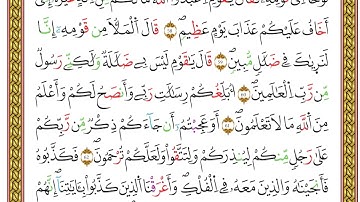 أَخَافُ عَلَيْكُمْ عَذَابَ يَوْمٍ عَظِيمٍ ۝٥٩ قَالَ ٱلْمَلَأُ مِن قَوْمِهِۦٓ إِنَّا
لَنَرَىٰكَ فِى ضَلَٰلٍ مُّبِينٍ ۝٦٠ قَالَ يَٰقَوْمِ لَيْسَ بِى ضَلَٰلَةٌ وَلَٰكِنِّى رَسُولٌ
مِّن رَّبِّ ٱلْعَٰلَمِينَ ۝٦١ أُبَلِّغُكُمْ رِسَٰلَٰتِ رَبِّى وَأَنصَحُ لَكُمْ وَأَعْلَمُ
مِنَ ٱللَّهِ مَا لَا تَعْلَمُونَ ۝٦٢ أَوَعَجِبْتُمْ أَن جَآءَكُمْ ذِكْرٌ مِّن رَّبِّكُمْ
عَلَىٰ رَجُلٍ مِّنكُمْ لِيُنذِرَكُمْ وَلِتَتَّقُوا۟ وَلَعَلَّكُمْ تُرْحَمُونَ ۝٦٣ فَكَذَّبُوهُ
فَأَنجَيْنَٰهُ وَٱلَّذِينَ مَعَهُۥ فِى ٱلْفُلْكِ وَأَغْرَقْنَا ٱلَّذِينَ كَذَّبُوا۟ بِـَٔايَٰتِنَآ ۚ إِنَّهُمْ